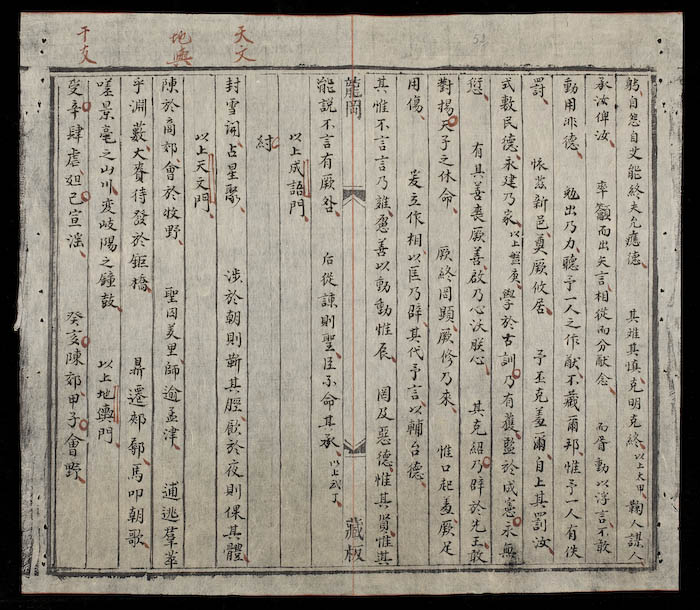 躬自怨自艾能終夫允應德　其难其慎克明克終以上太甲　鞠人謀人
承汝俾汝　率籲而出矢言相從而分猷念　而胥動以浮言不敢
動用非德　勉出乃力聽予一人之作猷不臧爾邦惟予一人有佚
罰　懷茲新邑奠厥攸居　予丕克羞爾自上其罰汝
式敷民德永建乃家以上盤庚　學於古訓乃有獲監於成憲永無
愆　有其善喪厥善啟乃心沃朕心　其克紹乃辟於先王敢
對揚天子之休命　厥終罔顯厥修乃來　惟口起羞厥足
用傷　爰立作相以匡乃辟其代予言以輔台德
其惟不言言乃雍慮善以動動惟辰　罔及惡德惟其賢惟其
能說不言有厥咎　后從諫則聖臣不命其承以上武丁
以上成語門
紂
封雪闭占星聚　涉於朝則斮其脛飲於夜則倮其體
以上天文門
陳於商郊會於牧野　聖囚羑里師逾孟津　逋逃群萃
乎淵藪大賚待發於鉅橋　鼎遷郟鄏馬叩朝歌
嗟景亳之山川变岐陽之鐘鼓　以上地輿門
受辛肆虐妲己宣淫　癸亥陳郊甲子會野
龍岡
藏板
天文
地輿
干支